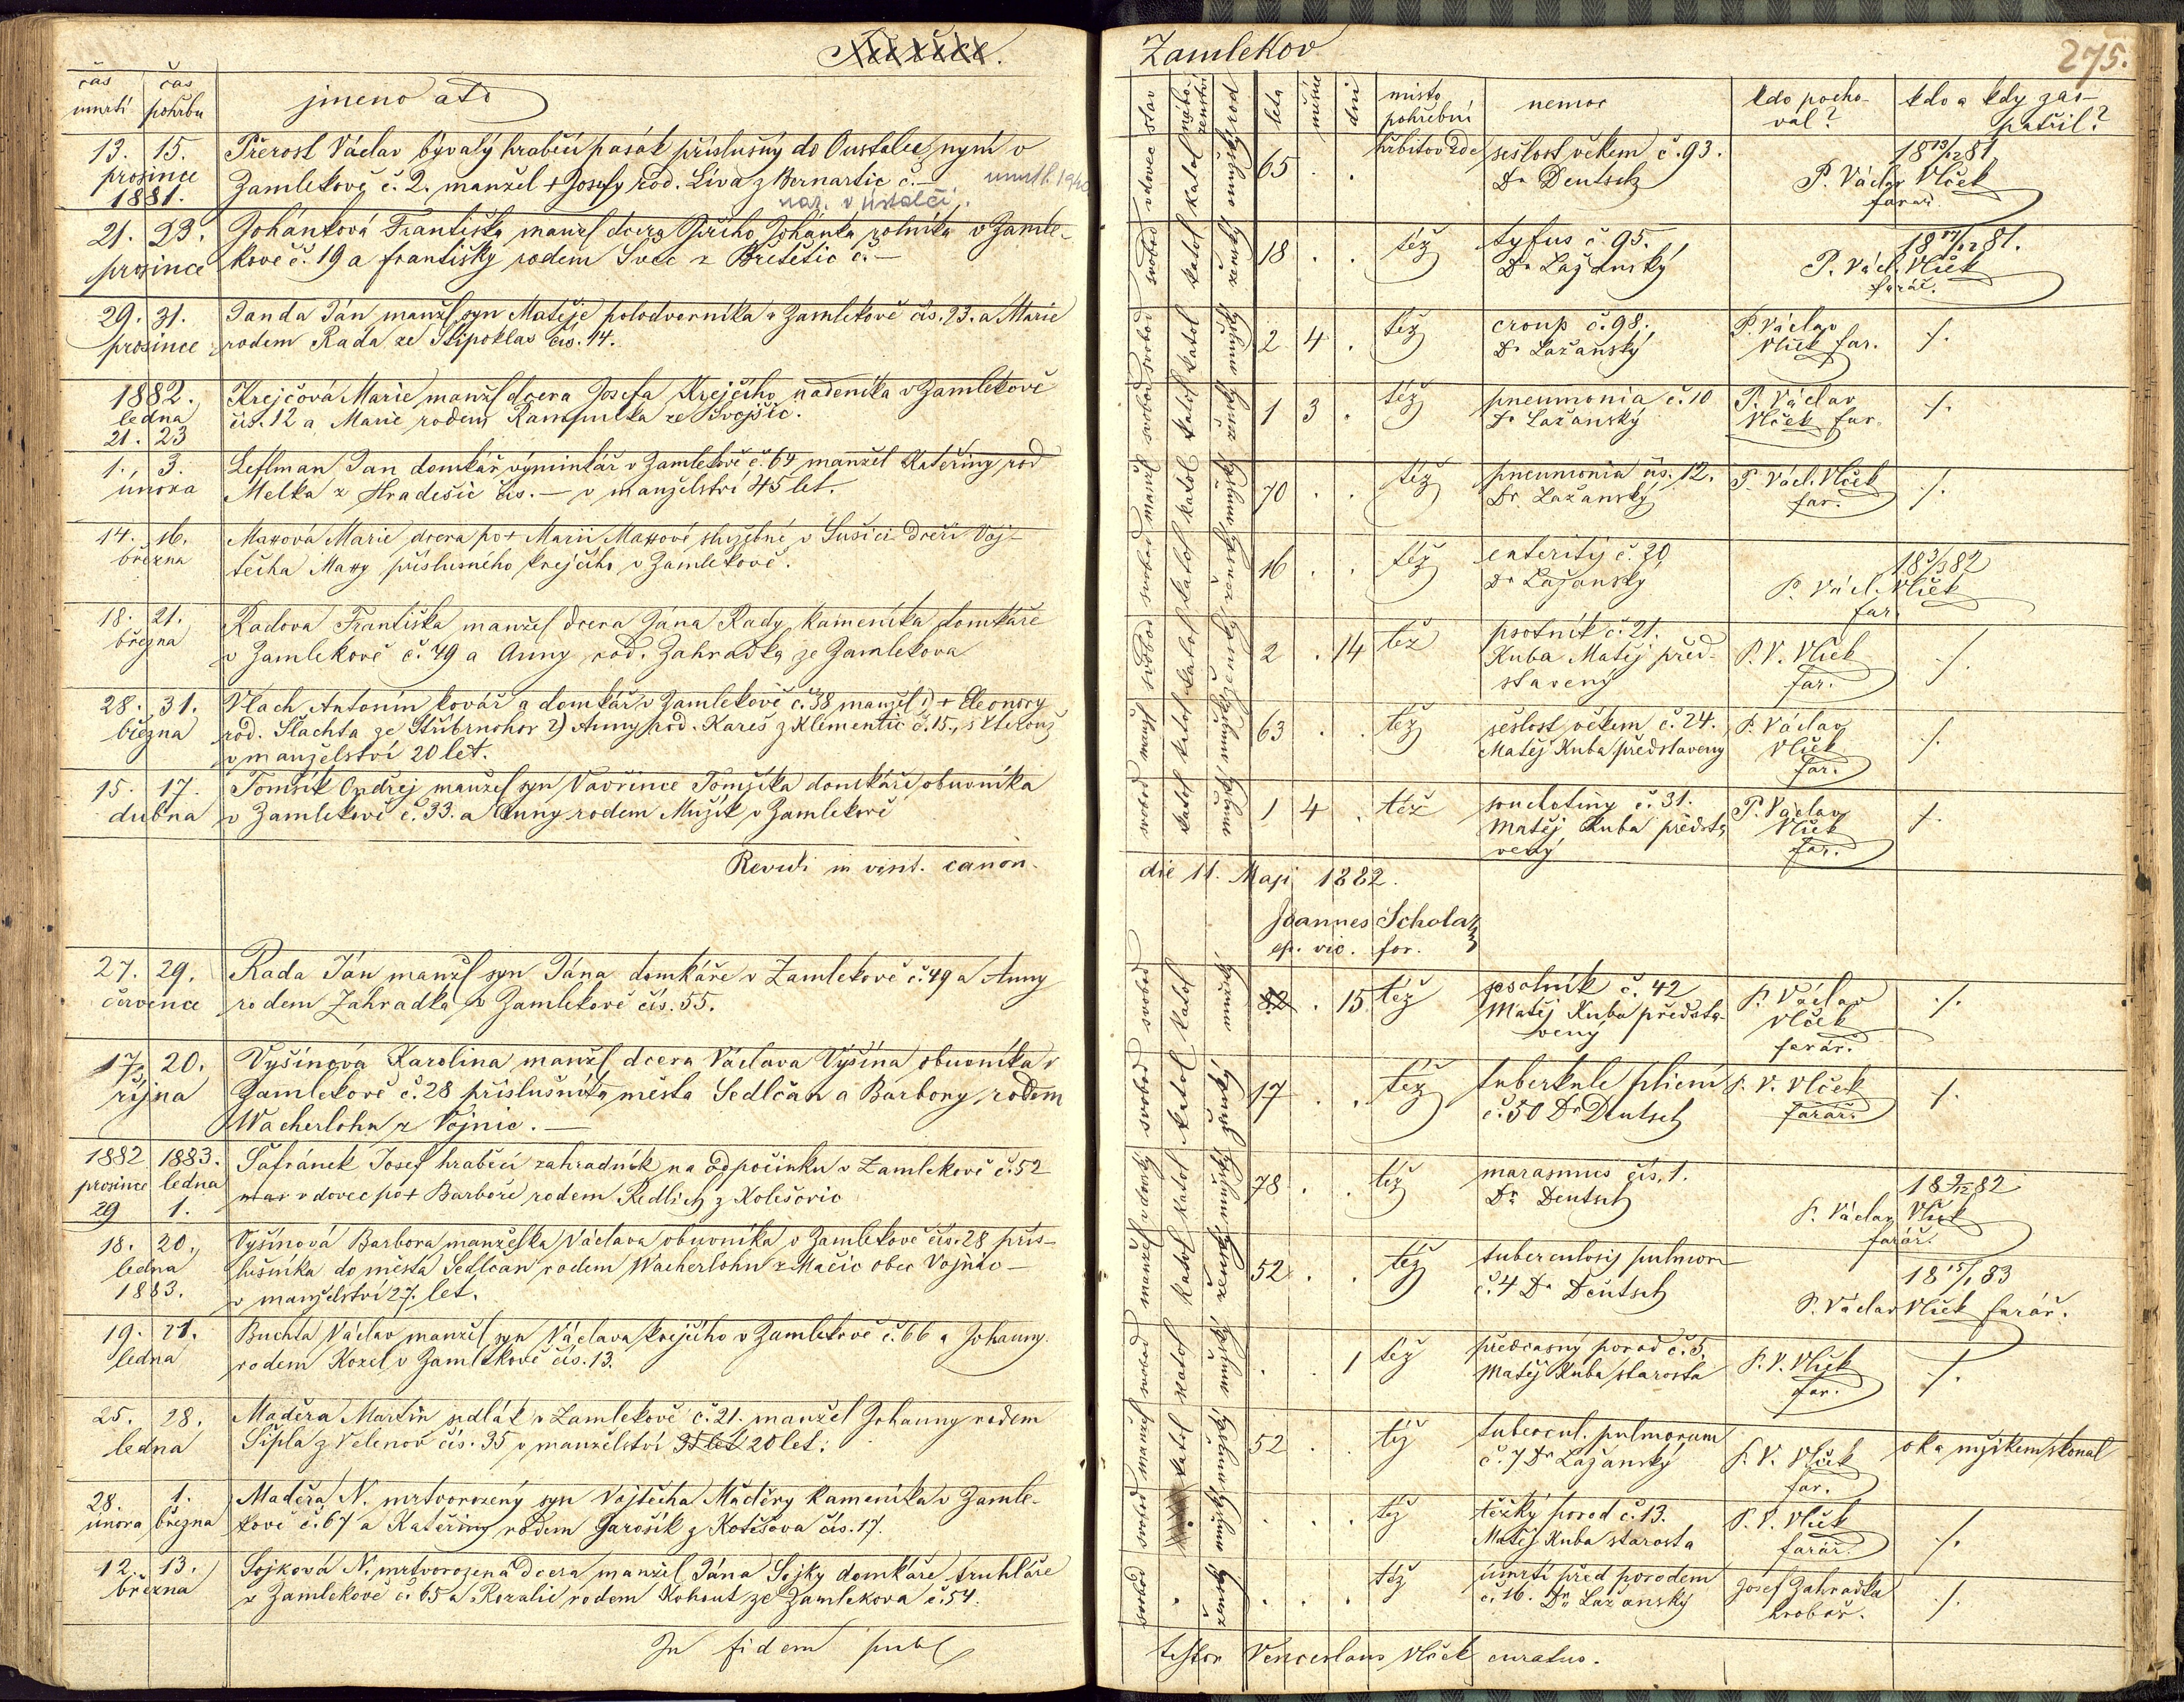 Zamlekov
275.
čas umrtí
čas pohřbu
jmeno atd
stav
nábo-
ženství
rod
léta
měsíc
dni
místo
pohřební
nemoc
kdo pocho-
val?
kdo a kdy zao-
patřil?
13. 15.
prosince
1881.
Přerost Václav bývalý hraběcí pasák příslušný do Oustalče, nyní v
Zamlekově č. 2. manžel + Josefy rod. Líva z Bernartic č. —
nar. v Ústalči.
vdovec
katol
mužský
65 . .
hřbitov zde
sešlost věkem č. 93.
Dr Deutsch
18 13/12 81
P. Václav Vlček
farář
21. 23.
prosince
Johánková Františka manžel dcera Jiřího Johánka rolníka v Zamle-
kově č. 19 a františky rodem Švec z Břešétic č. —
svobod
katol
ženská
18 . .
též
tyfus č. 95.
Dr Lažanský
18 17/12 81.
P. Václ. Vlček
farář.
29. 31.
prosince
Janda Ján manžel syn Matěje polodvorníka v Zamlekově čís. 23. a Marie
rodem Rada ze Štipoklas čís. 14.
svobod
katol
mužský
2 4 .
též
croup č. 98.
Dr Lažanský
P. Václav
Vlček far.
/.
1882.
ledna
21. 23
Krejčová Marie manžel dcera Josefa Krejčího nádeníka v Zamlekově
čís. 12 a Marie rodem Kampulka ze Svojšic.
svobod
katol
ženská
1 3 .
též
pneumonia č. 10
Dr Lažanský
P. Václav
Vlček far.
/.
1. 3.
února
Leflman Jan domkář výminkář v Zamlekově č. 64 manžel Kateřiny rod
Melka z Hradešic čís. — v manželství 45 let.
manžel
katol
mužský
70 . .
též
pneumonia čís. 12.
Dr. Lažanský
P. Václ. Vlček
far.
/.
14. 16.
března
Maxová Marie dcera po + Marii Maxové služebné v Sušici dceři Voj-
těcha Maxy příslušného krejčího v Zamlekově.
svobod
katol
ženská
16 . .
též
enteritij č. 20
Dr Lažanský
18 3/3 82
P. Václ. Vlček
far.
18. 21.
března
Radová Františka manžel dcera Jána Rady kameníka domkáře
v Zamlekově č. 49 a Anny rod. Zahradka ze Zamlekova
svobod
katol
ženská
2 . 14
též
psotník č. 21.
Kuba Matěj před-
stavený
P. V. Vlček
far.
/.
28. 31.
března
Vlach Antonín kovář a domkář v Zamlekově č. 38 manžel 1) + Eleonory
rod. Šlachta ze Stříbrnohor 2) Anny rod. Kareš z Klementic č. 15., s kterouž
v manželství 20 let.
manžel
katol
mužský
63 . .
též
sešlost věkem č. 24.
Matěj Kuba představený
P. Václav
Vlček
far.
/.
15. 17.
dubna
Tomšík Ondřej manžel syn Vavřince Tomšíka domkáře obuvníka
v Zamlekově č. 33. a Anny rodem Mužík v Zamlekově
svobod
katol
mužský
1 4 .
též
souchotiny č. 31.
Matěj Kuba předsta-
vený
P. Václav
Vlček
far.
/.
Revidi in visit. canon.
die 11. Maji 1882.
Joannes Scholaz
ep. vic. for.
27. 29.
července
Rada Ján manžel syn Jána domkáře v Zamlekově č. 49 a Anny
rodem Zahradka v Zamlekově čís. 55.
svobod
katol
mužský
. 15
též
psotník č. 42
Matěj Kuba předsta-
vený
P. Václav
Vlček
farář.
/.
17. 20.
října
Vyšínová Karolina manžel dcera Václava Vyšína obuvníka v
Zamlekově č. 28 příslušníka města Sedlčan a Barbory, rodem
Wacherlohn z Vojnic. —
svobod
katol
ženská
17 . .
též
tuberkule plicní
č. 50 Dr Deutsch
P. V. Vlček
farář.
/.
1882 1883.
prosince ledna
29 1.
Šafránek Josef hraběcí zahradník na odpočinku v Zamlekově č. 52
vdovec po + Barboře rodem Redlich z Kolešovic
vdovský
katol
mužský
78 . .
též
marasmus čís. 1.
Dr Deutsch
P. Václav Vlček
farář.
18. 20.
ledna
1883.
Vyšínová Barbora manželka Václava obuvníka v Zamlekově čís. 28 přís-
lušníka do města Sedlčan rodem Wacherlohn z Mačic obec Vojnic —
v manželství 27. let.
manžel
katol
ženská
52 . .
též
tuberculosis pulmon
č. 4 Dr Deutsch
18 15/1 83
P. Václav Vlček farář.
19. 21.
ledna
Buchta Václav manžel syn Václava krejčího v Zamlekově č. 66 a Johanny
rodem Kozel v Zamlekově čís. 13.
svobod
katol
mužský
. . 1
též
předčasný porod č. 5.
Matěj Kuba starosta
P. V. Vlček
far.
/.
25. 28.
ledna
Maděra Martin sedlák v Zamlekově č. 21. manžel Johanny rodem
Šípla z Velenov čís. 35 v manželství 35 let 20 let.
manžel
katol
mužský
52 . .
též
tubercul. pulmorum
č. 7 Dr Lažanský
P. V. Vlček
far.
oka mžikem skonal
28. 1.
února března
Maděra N. mrtvorozený syn Vojtěcha Maděry kameníka v Zamle-
kově č. 67 a Kateřiny rodem Jarošík z Kotěšova čís. 17.
svobod
mužský
. . .
též
těžký porod č. 13.
Matěj Kuba starosta
P. V. Vlček
farář.
/.
12. 13.
března
Sojková N. mrtvorozená dcera manžel Jána Sojky domkáře truhláře
v Zamlekově č. 65 a Rozalie rodem Kohout ze Zamlekova č. 54.
svobod
ženská
. . .
též
úmrtí před porodem
č. 16. Dr Lažanský
Josef Zahradka
hrobař.
/.
In fidem publ
testor Venceslaus Vlček curatus.